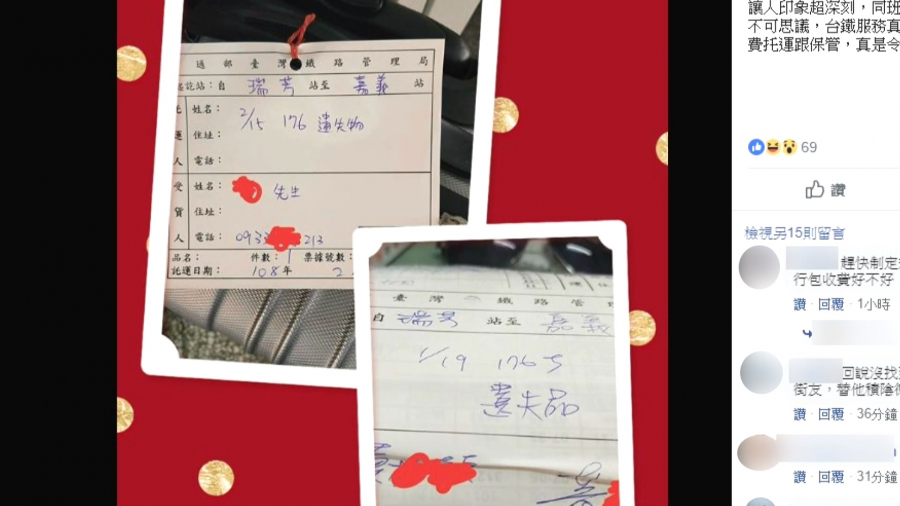 通部臺灣鐵路管理局
託站：自 瑞芳 站至 嘉義 站
姓名：
2/15 176 遺失物
運 住址：
人 電話：
受 姓名： 先生
貨 住址：
人 電話： 0933 213
品名： 件數：1 票據號數：
託運日期： 108年 2
臺灣 鐵路管理
自 瑞芳 站至 嘉義
1/19 176次
遺失品
讓人印象超深刻，同班
不可思議，台鐵服務真
費托運跟保管，真是令
69
讚
檢視另15則留言
趕快制定
行包收費好不好
讚 · 回覆 · 1小時
回說沒找
街友，替他積陰德
讚 · 回覆 · 36分鐘
讚 · 回覆 · 31分鐘